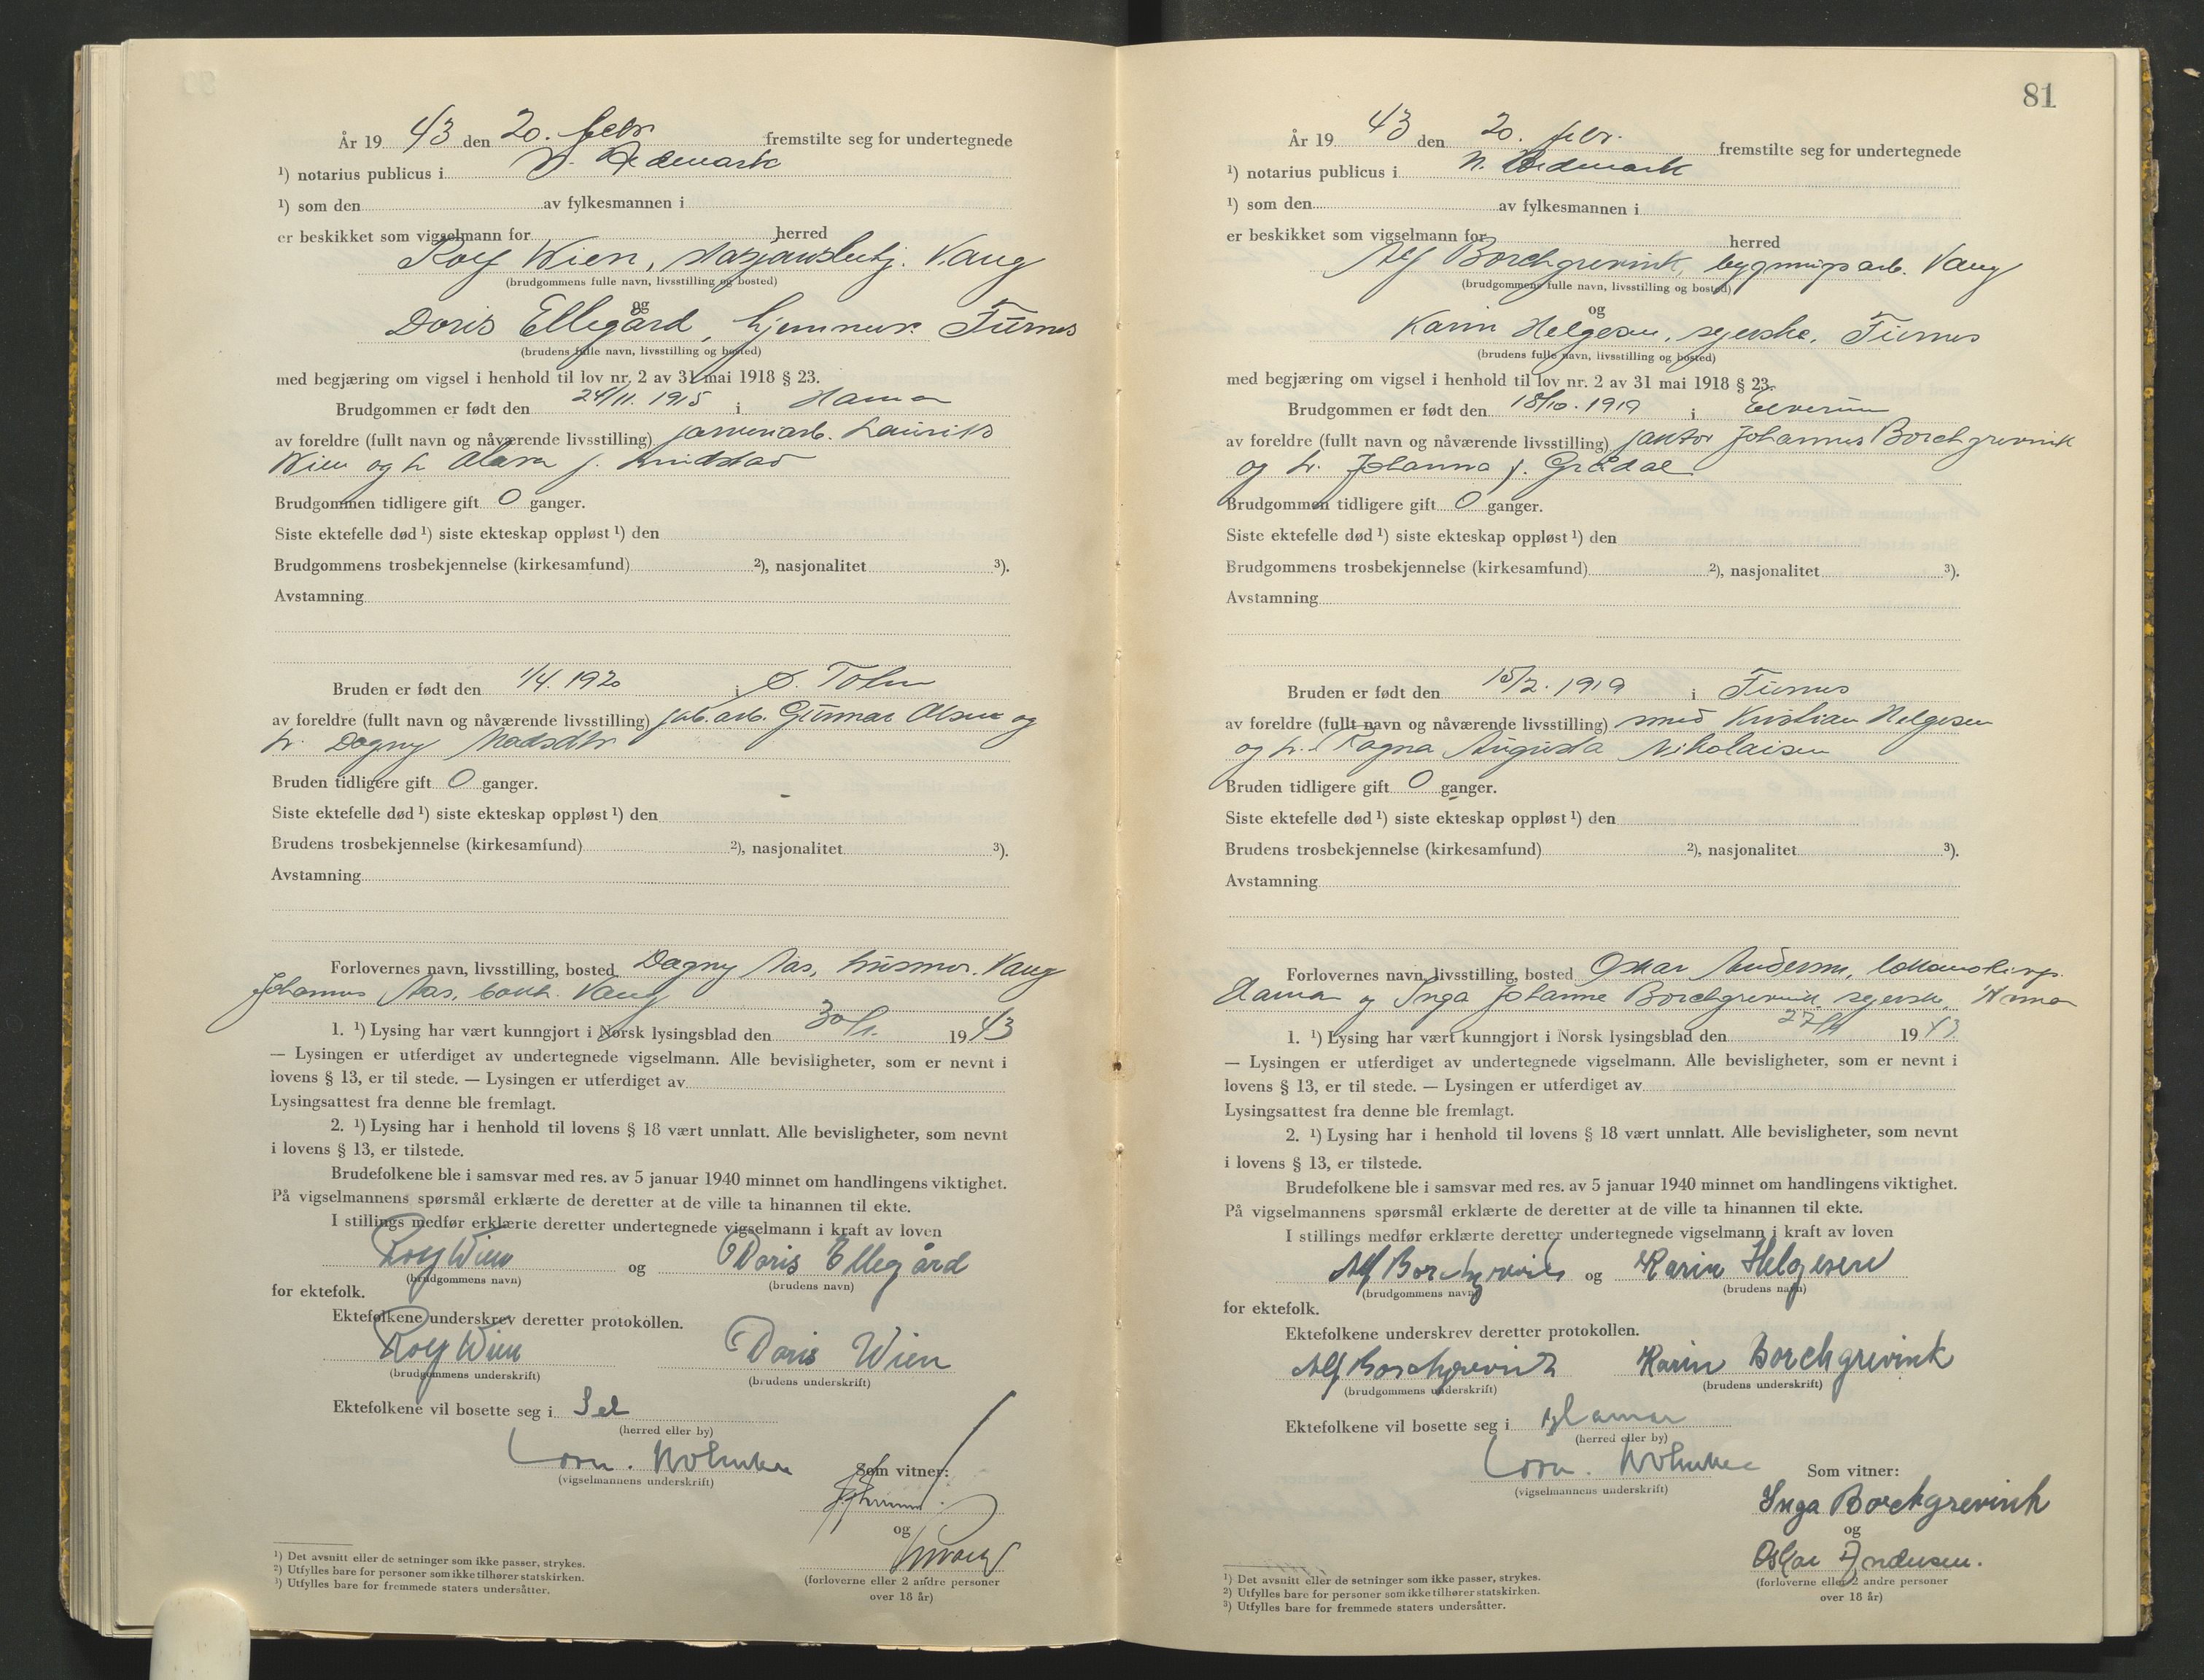 År 19 43 den 20. febr. fremstilte seg for undertegnede
¹) notarius publicus i N. Hedemark
¹) som den av fylkesmannen i
er beskikket som vigselmann for herred
Rolf Wien, Vang
(brudgommens fulle navn, livsstilling og bosted)
og
Doris Ellegård, hjemmev. Furnes
(brudens fulle navn, livsstilling og bosted)
med begjæring om vigsel i henhold til lov nr. 2 av 31 mai 1918 § 23.
Brudgommen er født den 24/11. 1915 i Hamar
av foreldre (fullt navn og nåværende livsstilling) Laurits
Wien og h.
Brudgommen tidligere gift 0 ganger.
Siste ektefelle død ¹) siste ekteskap oppløst ¹) den
Brudgommens trosbekjennelse (kirkesamfund) ²), nasjonalitet ³).
Avstamning
Bruden er født den 1/4. 1920 i Ø. Toten
av foreldre (fullt navn og nåværende livsstilling) fab.arb. Gunnar Olsen og
h. Dagny Madsdtr
Bruden tidligere gift 0 ganger.
Siste ektefelle død ¹) siste ekteskap oppløst ¹) den
Brudens trosbekjennelse (kirkesamfund) ²), nasjonalitet ³).
Avstamning
Forlovernes navn, livsstilling, bosted Dagny Aas, husmor. Vang
Johannes Aas, Vang
1. ¹) Lysing har vært kunngjort i Norsk lysingsblad den 30/1. 19 43
— Lysingen er utferdiget av undertegnede vigselmann. Alle bevisligheter, som er nevnt i
lovens § 13, er til stede. — Lysingen er utferdiget av
Lysingsattest fra denne ble fremlagt.
2. ¹) Lysing har i henhold til lovens § 18 vært unnlatt. Alle bevisligheter, som nevnt
i lovens § 13, er tilstede.
Brudefolkene ble i samsvar med res. av 5 januar 1940 minnet om handlingens viktighet.
På vigselmannens spørsmål erklærte de deretter at de ville ta hinannen til ekte.
I stillings medfør erklærte deretter undertegnede vigselmann i kraft av loven
Rolf Wien og Doris Ellegård
(brudgommens navn) (brudens navn)
for ektefolk.
Ektefolkene underskrev deretter protokollen.
Rolf Wien Doris Wien
(brudgommens underskrift) (brudens underskrift)
Ektefolkene vil bosette seg i Sel
(herred eller by)
(vigselmannens underskrift) Som vitner:
og
(forloverne eller 2 andre personer
over 18 år)
¹) Det avsnitt eller de setninger som ikke passer, strykes.
²) Utfylles bare for personer som ikke tilhører statskirken.
³) Utfylles bare for fremmede staters undersåtter.
81
År 19 43 den 20. febr. fremstilte seg for undertegnede
¹) notarius publicus i N. Hedemark
¹) som den av fylkesmannen i
er beskikket som vigselmann for herred
Alf Borchgrevink, bygningsarb. Vang
(brudgommens fulle navn, livsstilling og bosted)
og
Karin Helgesen, syerske, Furnes
(brudens fulle navn, livsstilling og bosted)
med begjæring om vigsel i henhold til lov nr. 2 av 31 mai 1918 § 23.
Brudgommen er født den 18/10. 1919 i Elverum
av foreldre (fullt navn og nåværende livsstilling) Johannes Borchgrevink
og h. Johanna f. Grådal
Brudgommen tidligere gift 0 ganger.
Siste ektefelle død ¹) siste ekteskap oppløst ¹) den
Brudgommens trosbekjennelse (kirkesamfund) ²), nasjonalitet ³).
Avstamning
Bruden er født den 15/2. 1919 i Furnes
av foreldre (fullt navn og nåværende livsstilling) smed Kristian Helgesen
og h. Ragna Augusta Nikolaisen
Bruden tidligere gift 0 ganger.
Siste ektefelle død ¹) siste ekteskap oppløst ¹) den
Brudens trosbekjennelse (kirkesamfund) ²), nasjonalitet ³).
Avstamning
Forlovernes navn, livsstilling, bosted Oskar Andersen,
Hamar og Inga Johanne Borchgrevink, syerske, Hamar
1. ¹) Lysing har vært kunngjort i Norsk lysingsblad den 27/1 19 43.
— Lysingen er utferdiget av undertegnede vigselmann. Alle bevisligheter, som er nevnt i
lovens § 13, er til stede. — Lysingen er utferdiget av
Lysingsattest fra denne ble fremlagt.
2. ¹) Lysing har i henhold til lovens § 18 vært unnlatt. Alle bevisligheter, som nevnt
i lovens § 13, er tilstede.
Brudefolkene ble i samsvar med res. av 5 januar 1940 minnet om handlingens viktighet.
På vigselmannens spørsmål erklærte de deretter at de ville ta hinannen til ekte.
I stillings medfør erklærte deretter undertegnede vigselmann i kraft av loven
Alf Borchgrevink og Karin Helgesen
(brudgommens navn) (brudens navn)
for ektefolk.
Ektefolkene underskrev deretter protokollen.
Alf Borchgrevink Karin Borchgrevink
(brudgommens underskrift) (brudens underskrift)
Ektefolkene vil bosette seg i Hamar
(herred eller by)
(vigselmannens underskrift) Som vitner:
Inga Borchgrevink
og
Oskar Andersen.
(forloverne eller 2 andre personer
over 18 år)
¹) Det avsnitt eller de setninger som ikke passer, strykes.
²) Utfylles bare for personer som ikke tilhører statskirken.
³) Utfylles bare for fremmede staters undersåtter.